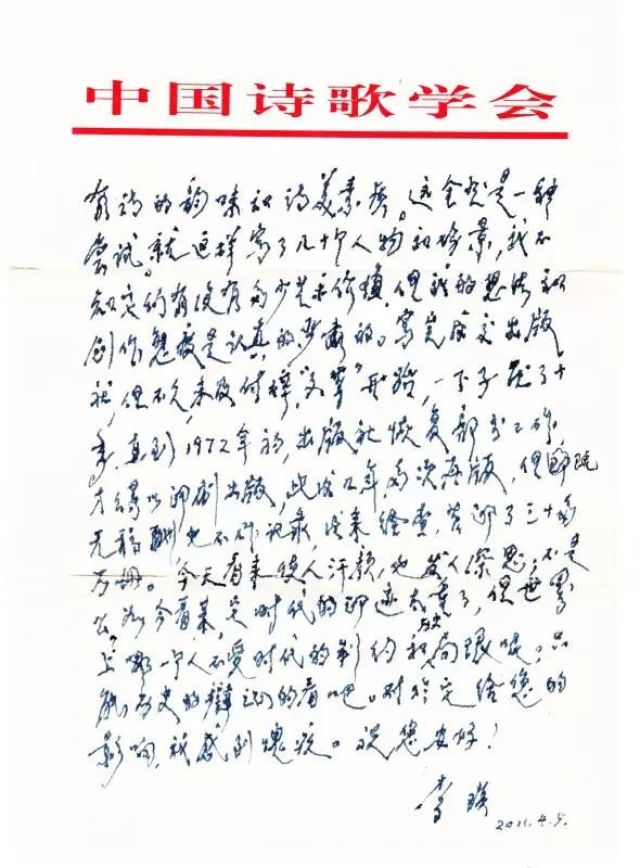 中国诗歌学会
有诗的韵味和诗美素质。这全然是一种
尝试。就这样写了几十个人物和场景，我不
知它的有没有多少艺术价值，但我的想法和
创作态度是认真的严肃的。写完后交出版
社，但不久未及付梓，"文革"开始，一下子花了十
年，直到1972年初，出版社恢复部分工作，
才得以印刷出版，此后几年，多次再版，但既
无稿酬也不作记录，后来经查，共印了三十多
万册。今天看来使人汗颜，也发人深思，不是
么？如今看来，它时代的印迹太重了，但世界
上哪一个人不受时代的制约和局限呢？只
能历史的辩证的看吧。对于它给您的
影响，我感到愧疚。祝您安好！
李瑛
2011.4.5.